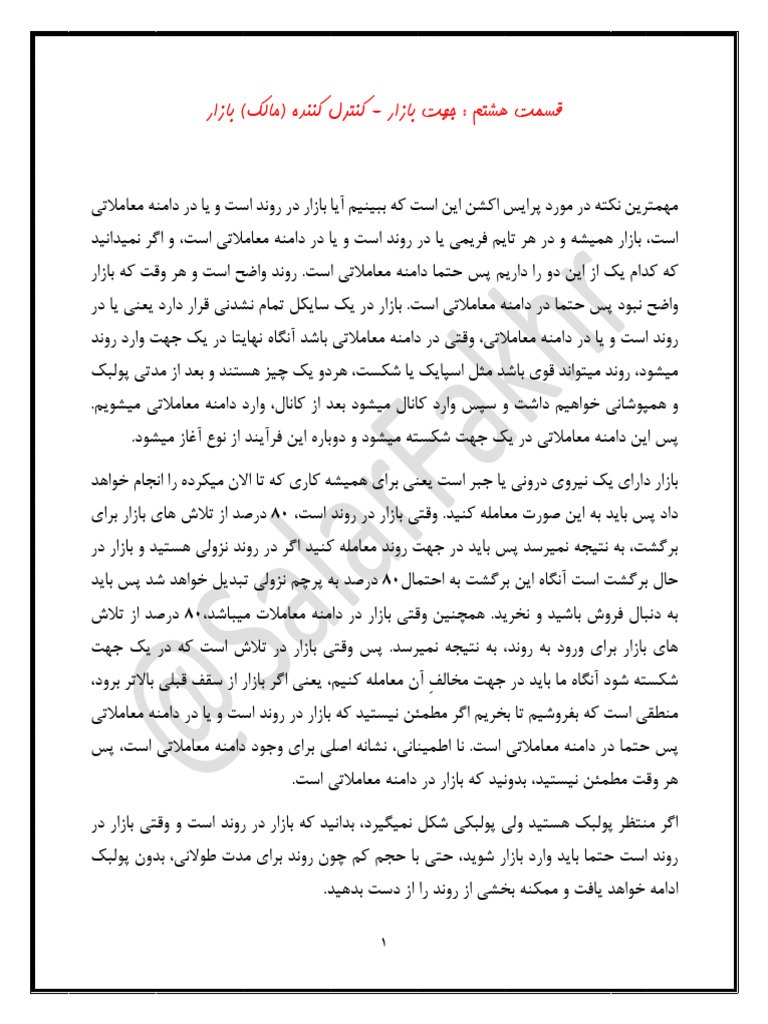 قسمت هشتم : جهت بازار - کنترل کننده (مالک) بازار
مهمترین نکته در مورد پرایس اکشن این است که ببینیم آیا بازار در روند است و یا در دامنه معاملاتی
است، بازار همیشه و در هر تایم فریمی یا در روند است و یا در دامنه معاملاتی است، و اگر نمیدانید
که کدام یک از این دو را داریم پس حتما دامنه معاملاتی است. روند واضح است و هر وقت که بازار
واضح نبود پس حتما در دامنه معاملاتی است. بازار در یک سایکل تمام نشدنی قرار دارد یعنی یا در
روند است و یا در دامنه معاملاتی، وقتی در دامنه معاملاتی باشد آنگاه نهایتا در یک جهت وارد روند
میشود، روند میتواند قوی باشد مثل اسپایک یا شکست، هردو یک چیز هستند و بعد از مدتی پولبک
و همپوشانی خواهیم داشت و سپس وارد کانال میشود بعد از کانال، وارد دامنه معاملاتی میشویم.
پس این دامنه معاملاتی در یک جهت شکسته میشود و دوباره این فرآیند از نوع آغاز میشود.
بازار دارای یک نیروی درونی یا جبر است یعنی برای همیشه کاری که تا الان میکرده را انجام خواهد
داد پس باید به این صورت معامله کنید. وقتی بازار در روند است، ۸۰ درصد از تلاش های بازار برای
برگشت، به نتیجه نمیرسد پس باید در جهت روند معامله کنید اگر در روند نزولی هستید و بازار در
حال برگشت است آنگاه این برگشت به احتمال۸۰ درصد به پرچم نزولی تبدیل خواهد شد پس باید
به دنبال فروش باشید و نخرید. همچنین وقتی بازار در دامنه معاملات میباشد،۸۰ درصد از تلاش
های بازار برای ورود به روند، به نتیجه نمیرسد. پس وقتی بازار در تلاش است که در یک جهت
شکسته شود آنگاه ما باید در جهت مخالفِ آن معامله کنیم، یعنی اگر بازار از سقف قبلی بالاتر برود،
منطقی است که بفروشیم تا بخریم اگر مطمئن نیستید که بازار در روند است و یا در دامنه معاملاتی
پس حتما در دامنه معاملاتی است. نا اطمینانی، نشانه اصلی برای وجود دامنه معاملاتی است، پس
هر وقت مطمئن نیستید، بدونید که بازار در دامنه معاملاتی است.
اگر منتظر پولبک هستید ولی پولبکی شکل نمیگیرد، بدانید که بازار در روند است و وقتی بازار در
روند است حتما باید وارد بازار شوید، حتی با حجم کم چون روند برای مدت طولانی، بدون پولبک
ادامه خواهد یافت و ممکنه بخشی از روند را از دست بدهید.
۱
@SalarFakhr